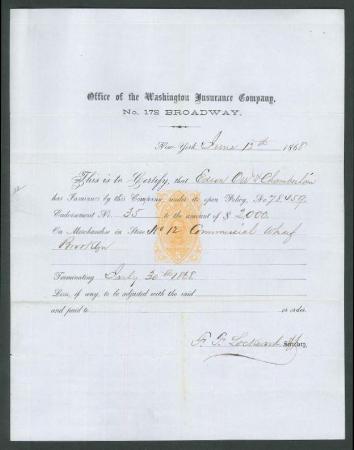 Office of the Washington Insurance Company,
No. 172 BROADWAY.
New York June 13th 1868
This is to Certify, that Edson Orr & Chamberlain
has Insurance by this Company, under its open Policy, No 78459.
Endorsement No. 35 to the amount of $ 2,000
On Merchandise in Store No 12 Commercial Wharf
Brooklyn
Terminating July 30th 1868
Loss, if any, to be adjusted with the said
and paid to or order.
Secretary.